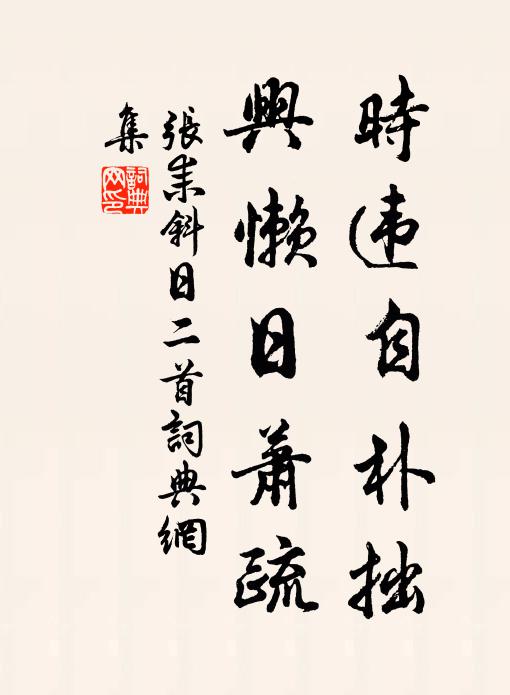 時違自朴拙
興懶日蕭疏
張耒斜日二首詞典網
集
詞典
网印